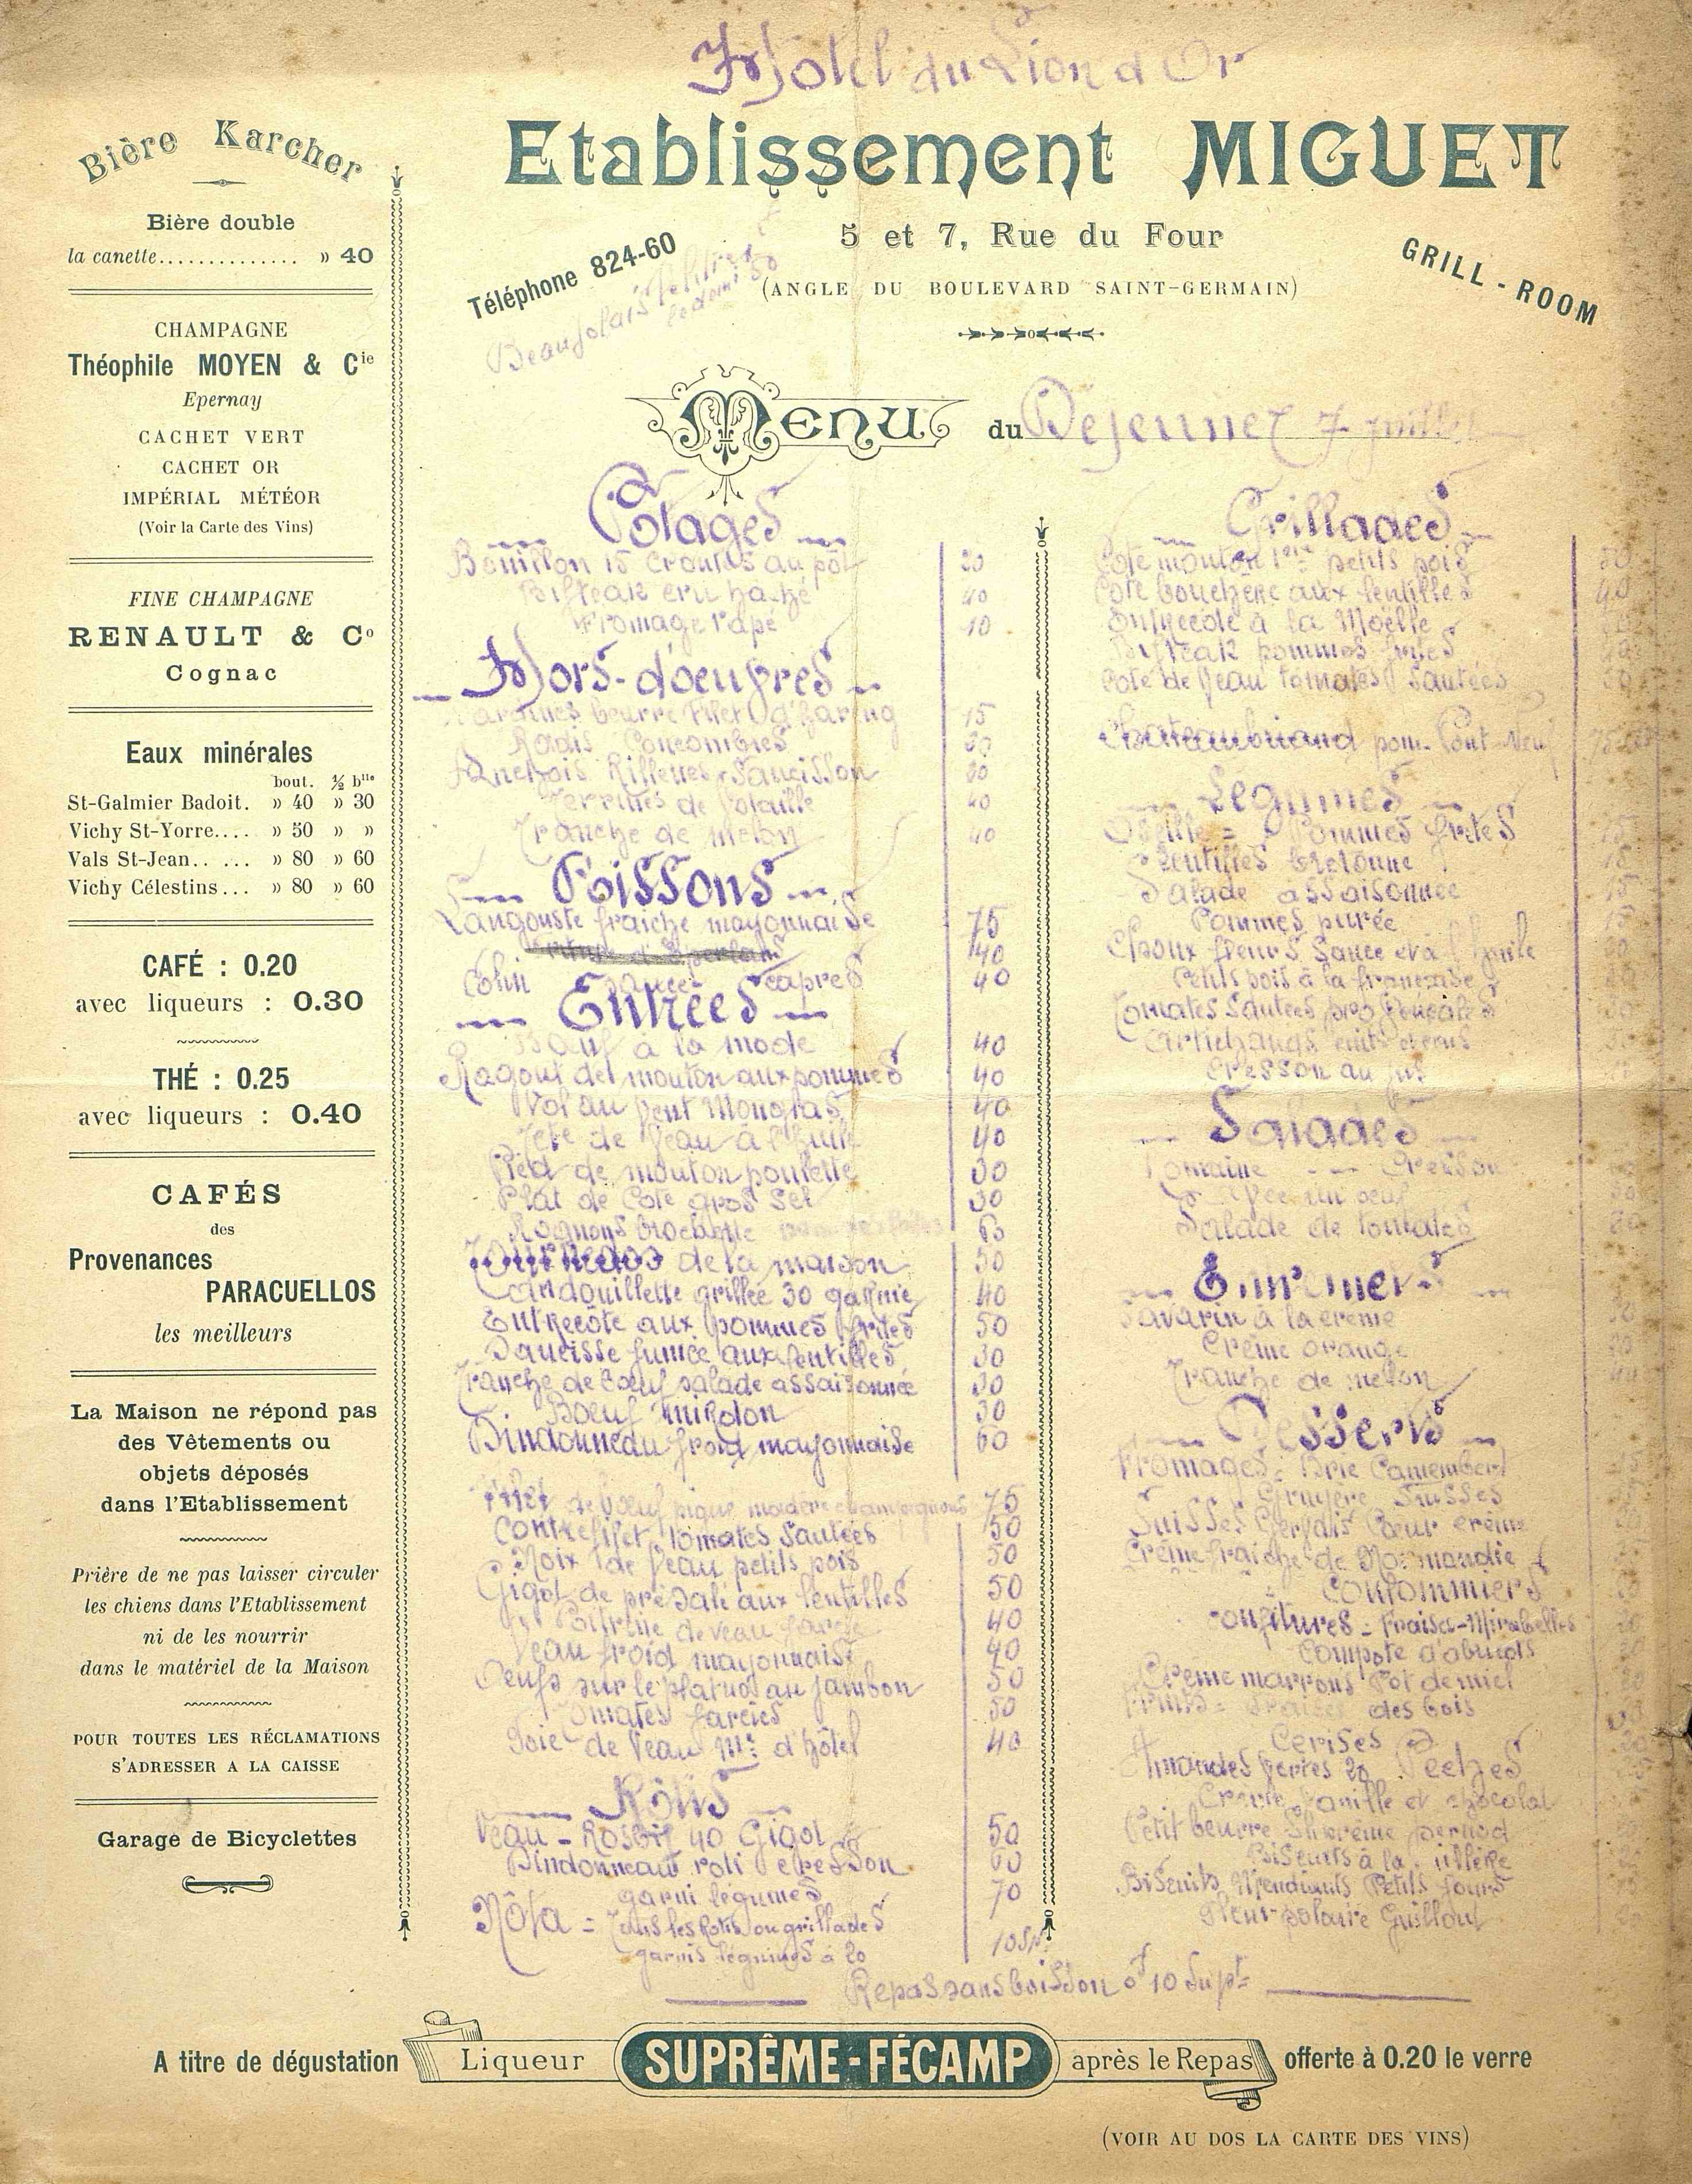 Hotel du Lion d'Or
Etablissement MIGUET
5 et 7, Rue du Four
(ANGLE DU BOULEVARD SAINT-GERMAIN)
Téléphone 824-60
GRILL-ROOM
Beaujolais
MENU du Dejeuner 7 juillet
Bière Karcher
Bière double
la canette.............. » 40
CHAMPAGNE
Théophile MOYEN & Cie
Epernay
CACHET VERT
CACHET OR
IMPÉRIAL MÉTÉOR
(Voir la Carte des Vins)
FINE CHAMPAGNE
RENAULT & Co
Cognac
Eaux minérales
bout. ½ blle
St-Galmier Badoit. » 40 » 30
Vichy St-Yorre.... » 50 » »
Vals St-Jean.. ... » 80 » 60
Vichy Célestins... » 80 » 60
CAFÉ : 0.20
avec liqueurs : 0.30
THÉ : 0.25
avec liqueurs : 0.40
CAFÉS
des
Provenances
PARACUELLOS
les meilleurs
La Maison ne répond pas
des Vêtements ou
objets déposés
dans l'Etablissement
Prière de ne pas laisser circuler
les chiens dans l'Etablissement
ni de les nourrir
dans le matériel de la Maison
POUR TOUTES LES RÉCLAMATIONS
S'ADRESSER A LA CAISSE
Garage de Bicyclettes
Potages
Bouillon 15 Croutes au pôt 20
Bifteak cru haché 40
Fromage rapé 10
Hors-d'oeuvres
beurre Filet d'hareng 15
Radis Concombres 30
Rillettes Saucisson 30
Terrines de Volaille 40
Tranche de melon 40
Poissons
Langouste fraiche mayonnaise 75
40
Colin sauce capres 40
Entrées
Bœuf à la mode 40
Ragout de mouton aux pommes 40
Vol au vent Monglas 40
Tete de Veau à l'huile 40
Pied de mouton poulette 30
Plat de Cote gros sel 30
Rognons brochette 60
Tournedos de la maison 50
andouillette grillée 30 garnie 40
Entrecôte aux pommes frites 50
Saucisse fumée aux lentilles 30
Tranche de bœuf salade assaisonnée 30
Boeuf miroton 30
Dindonneau froid mayonnaise 60
Filet de bœuf piqué madère champignons 75
Contrefilet tomates sautées 50
Noix de Veau petits pois 50
Gigot de présalé aux lentilles 50
Poitrine de veau farcie 40
Veau froid mayonnaise 40
Oeufs sur le plat au jambon 50
Tomates farcies 50
Foie de Veau Me d'hôtel 40
Rôtis
Veau - Rosbif 40 Gigot 50
Dindonneau roti cresson 60
garni légumes 70
Nôta = Tous les Rotis ou grillades
garnis légumes à 20 10 Spt
Grillades
Cote mouton petits pois 50
Cote bouchere aux lentilles 40
Entrecôte à la Moëlle
Bifteak pommes frites
Cote de Veau tomates sautées
Chateaubriand pom. Pont-Neuf
Légumes
Oseille = Pommes frites 15
Lentilles bretonne
Salade assaisonnée 15
Pommes purée 15
Choux fleurs Sauce et à l'huile
Petits pois à la française
Tomates sautées provençales
Artichauds cuits et crus
Cresson au jus
Salades
Romaine -- Cresson
Avec un oeuf
Salade de tomates
Entremets
Savarin à la creme
Crême orange
Tranche de melon
Desserts
Fromages: Brie Camembert
Gruyère Suisses
Suisses Gervais Cœur crème
Crême fraiche de Normandie
Coulommiers
Confitures - Fraise-Mirabelles
Compote d'abricots
Crême marrons Pot de miel
Fruits = Fraises des bois
Cerises
Amandes vertes 20 Peches
Creme Vanille et chocolat
Petit beurre Suprême pernod
Biscuits à la cuillère
Biscuits Mendiants Petits fours
Fleur polaire Guillout
Repas sans boisson of 10 Supt
A titre de dégustation Liqueur SUPRÊME-FÉCAMP après le Repas offerte à 0.20 le verre
(VOIR AU DOS LA CARTE DES VINS)